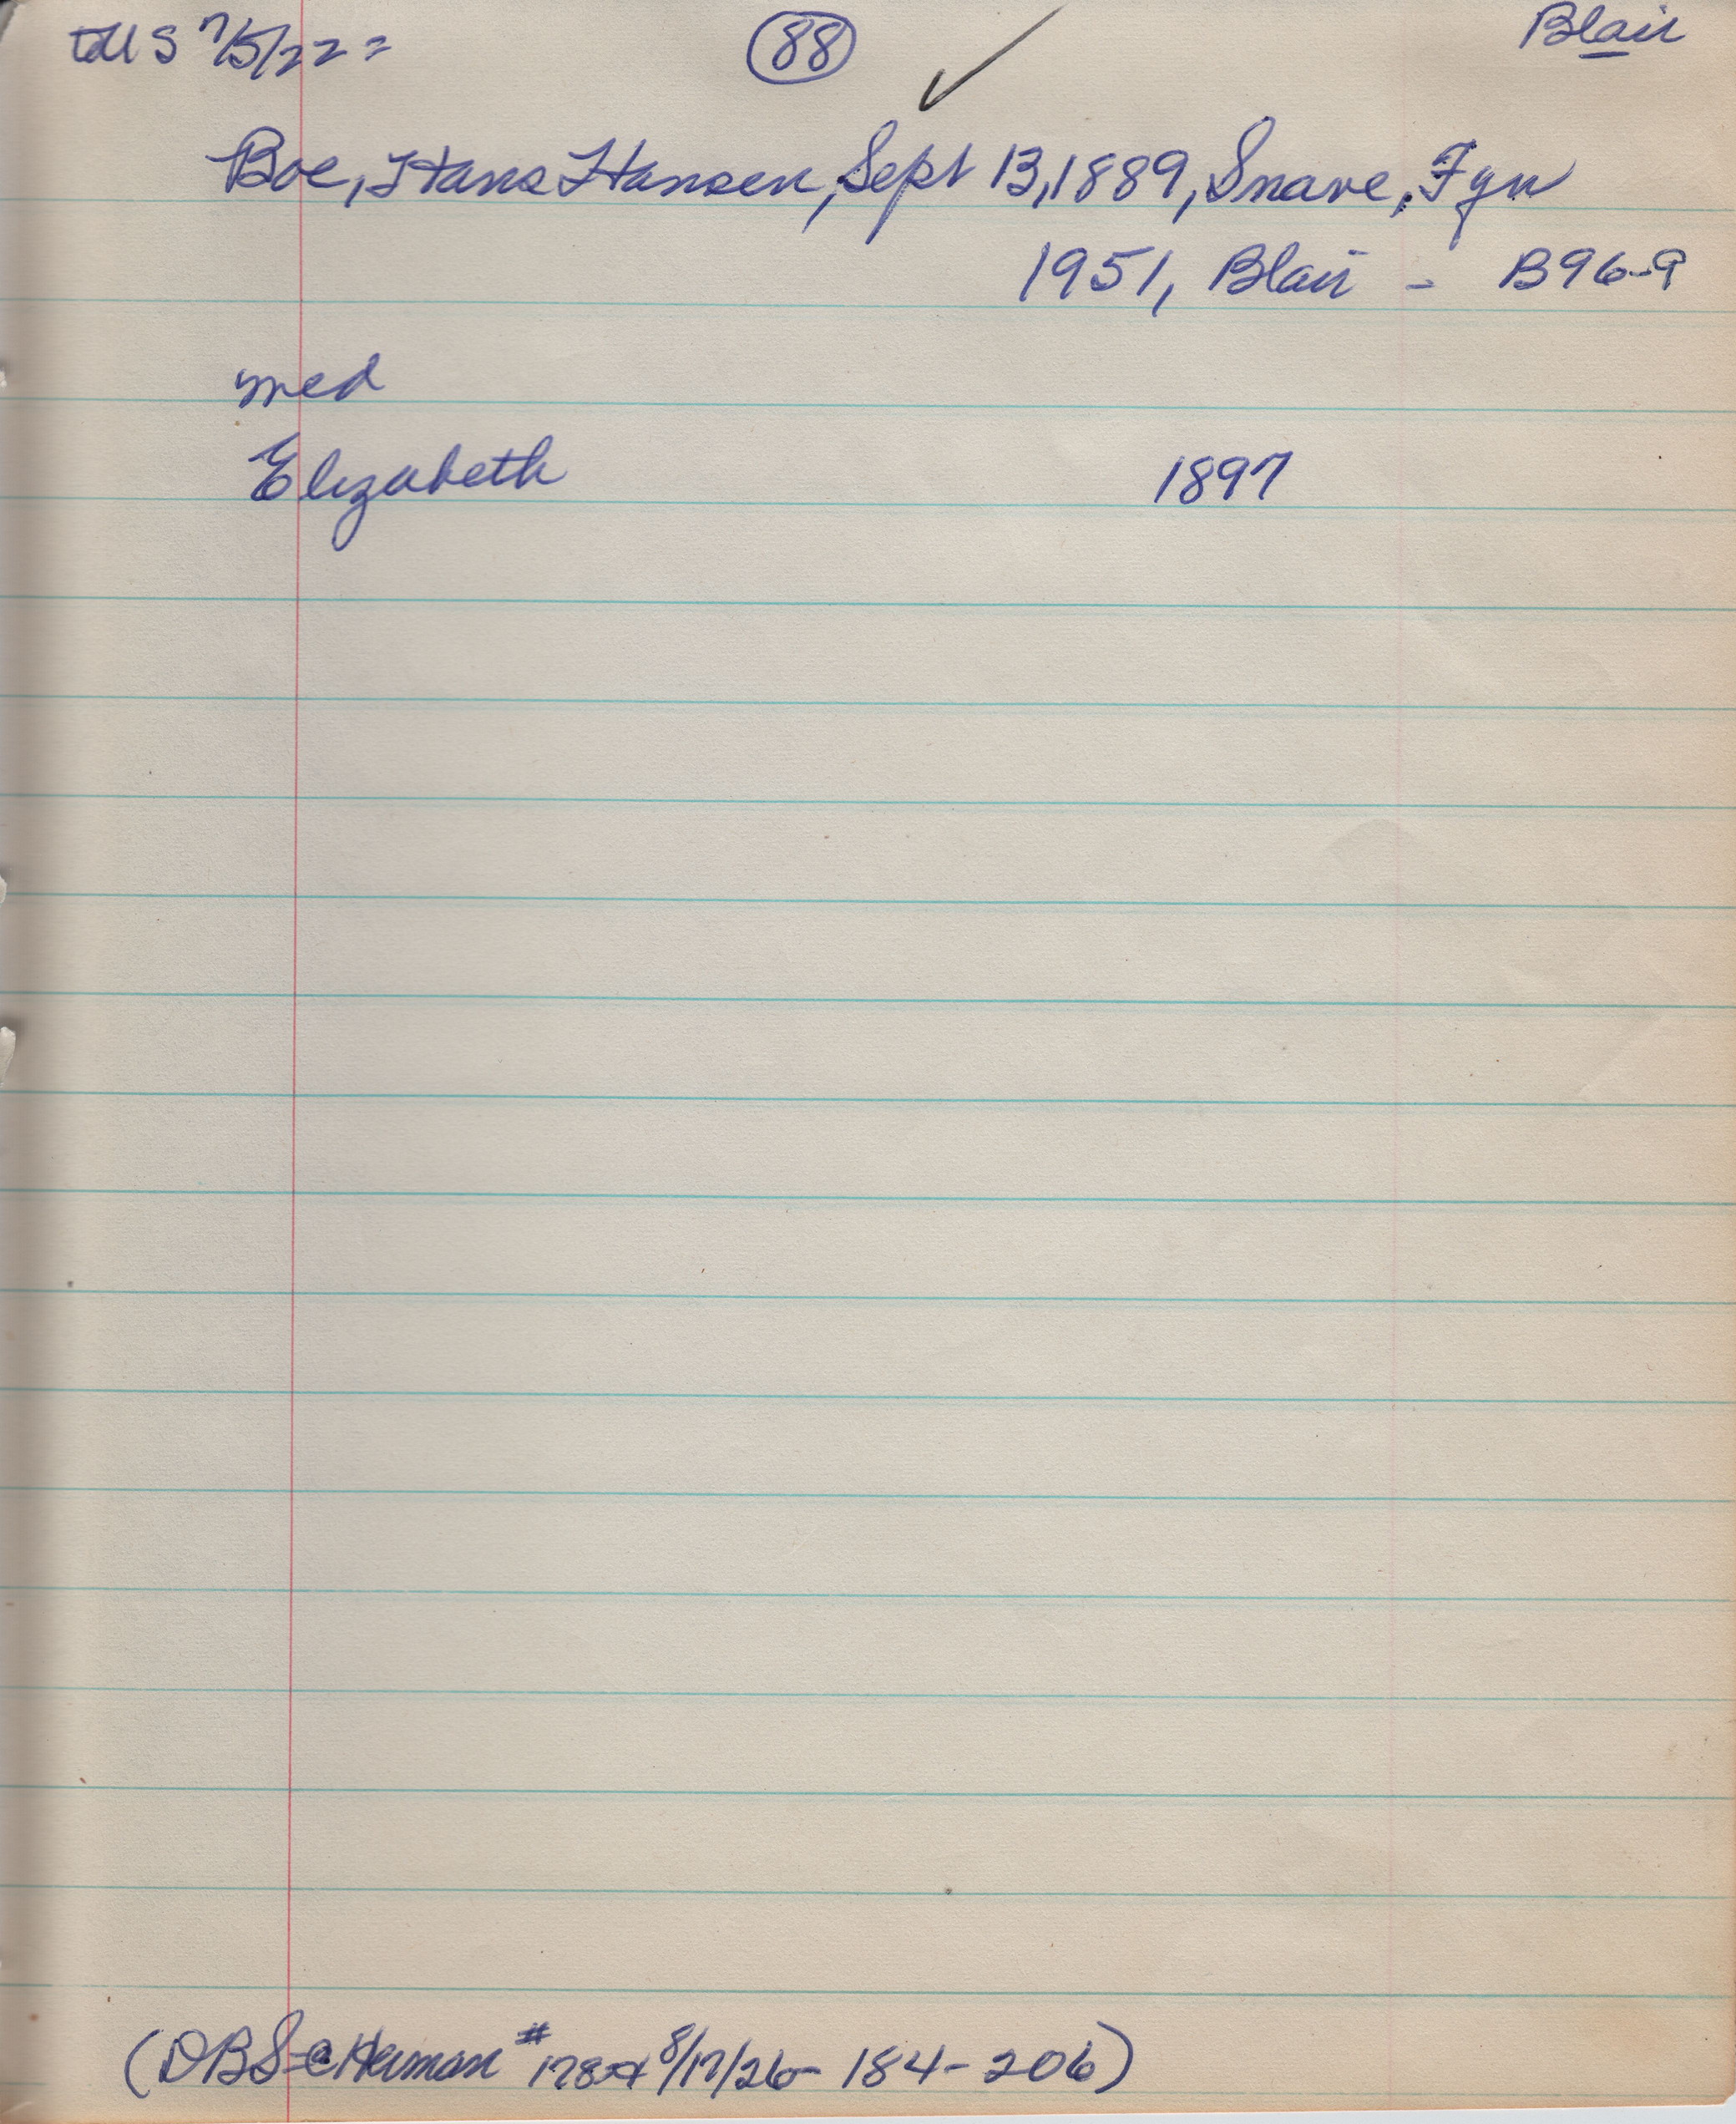 till US 7/5/22 =
88
Blair
Boe, Hans Hansen, Sept 13, 1889, Snave, Fyn
1951, Blair - B96-9
med
Elizabeth 1897
(DBS @ Herman # 178 8/17/26 - 184 - 206)